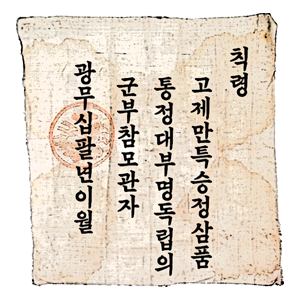 칙령
고제만특승정삼품
통정대부명독립의
군부참모관자
광무십팔년이월